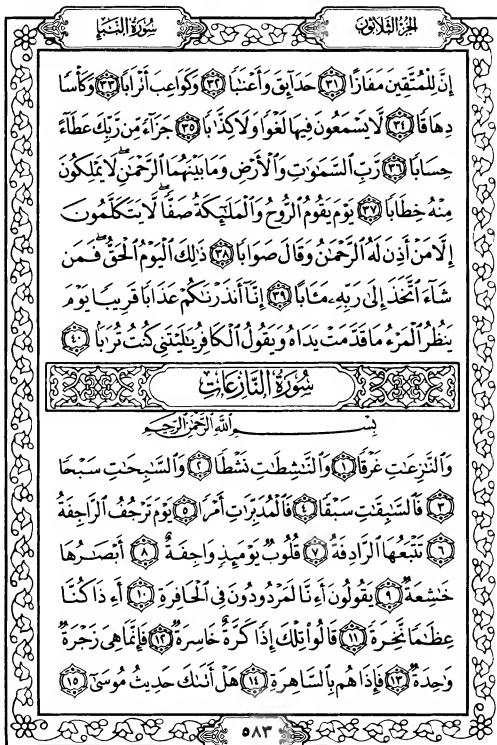 الجزء الثلاثون
سورة النبإ
إِنَّ لِلْمُتَّقِينَ مَفَازًا ٣١ حَدَآئِقَ وَأَعْنَٰبًا ٣٢ وَكَوَاعِبَ أَتْرَابًا ٣٣ وَكَأْسًا
دِهَاقًا ٣٤ لَّا يَسْمَعُونَ فِيهَا لَغْوًا وَلَا كِذَّٰبًا ٣٥ جَزَآءً مِّن رَّبِّكَ عَطَآءً
حِسَابًا ٣٦ رَّبِّ السَّمَٰوَٰتِ وَالْأَرْضِ وَمَا بَيْنَهُمَا الرَّحْمَٰنِ ۖ لَا يَمْلِكُونَ
مِنْهُ خِطَابًا ٣٧ يَوْمَ يَقُومُ الرُّوحُ وَالْمَلَٰٓئِكَةُ صَفًّا ۖ لَّا يَتَكَلَّمُونَ
إِلَّا مَنْ أَذِنَ لَهُ الرَّحْمَٰنُ وَقَالَ صَوَابًا ٣٨ ذَٰلِكَ الْيَوْمُ الْحَقُّ ۖ فَمَن
شَآءَ اتَّخَذَ إِلَىٰ رَبِّهِۦ مَـَٔابًا ٣٩ إِنَّآ أَنذَرْنَٰكُمْ عَذَابًا قَرِيبًا يَوْمَ
يَنظُرُ الْمَرْءُ مَا قَدَّمَتْ يَدَاهُ وَيَقُولُ الْكَافِرُ يَٰلَيْتَنِى كُنتُ تُرَٰبًا ٤٠
سورة النازعات
بِسْمِ اللَّهِ الرَّحْمَٰنِ الرَّحِيمِ
وَالنَّٰزِعَٰتِ غَرْقًا ١ وَالنَّٰشِطَٰتِ نَشْطًا ٢ وَالسَّٰبِحَٰتِ سَبْحًا
٣ فَالسَّٰبِقَٰتِ سَبْقًا ٤ فَالْمُدَبِّرَٰتِ أَمْرًا ٥ يَوْمَ تَرْجُفُ الرَّاجِفَةُ
٦ تَتْبَعُهَا الرَّادِفَةُ ٧ قُلُوبٌ يَوْمَئِذٍ وَاجِفَةٌ ٨ أَبْصَٰرُهَا
خَٰشِعَةٌ ٩ يَقُولُونَ أَءِنَّا لَمَرْدُودُونَ فِى الْحَافِرَةِ ١٠ أَءِذَا كُنَّا
عِظَٰمًا نَّخِرَةً ١١ قَالُوا تِلْكَ إِذًا كَرَّةٌ خَاسِرَةٌ ١٢ فَإِنَّمَا هِىَ زَجْرَةٌ
وَٰحِدَةٌ ١٣ فَإِذَا هُم بِالسَّاهِرَةِ ١٤ هَلْ أَتَىٰكَ حَدِيثُ مُوسَىٰٓ ١٥
٥٨٣